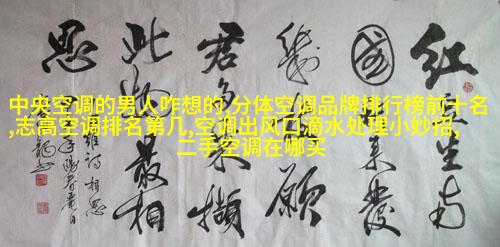 红豆生南
國春来發
幾枝願
君多采撷
此物最相
思
中央空调的男人咋想的,分体空调品牌排行榜前十名
,志高空调排名第几,空调出风口滴水处理小妙招,
二手空调在哪买